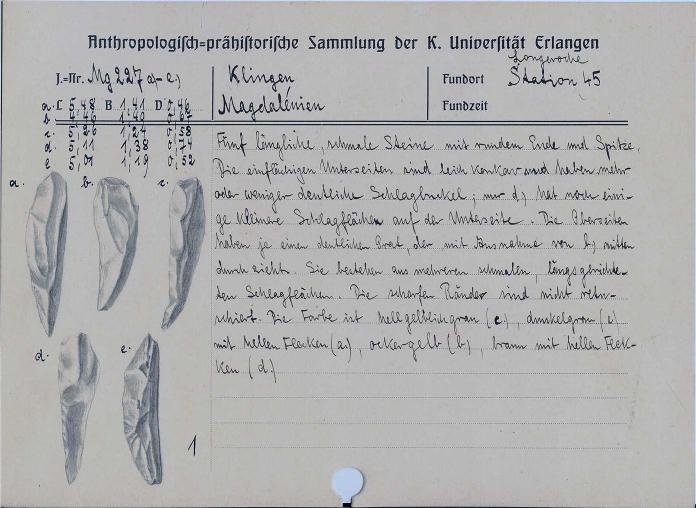 Anthropologisch=prähistorische Sammlung der K. Universität Erlangen
J.=Nr. Mg 227 a)-e)
Klingen
Magdalénien
Longeroche
Fundort Station 45
Fundzeit
a. L 5,48 B 1,41 D 0,46
5,26 1,24 0,58
d. 5,11 1,38 0,74
e 5,01 1,19 0,52
Fünf längliche, schmale Steine mit rundem Ende und Spitze.
Die einflächigen Unterseiten sind leich konkav und haben mehr
oder weniger deutliche Schlagbuckel; nur d) hat noch eini-
ge kleinere Schlagflächen auf der Unterseite. Die Oberseiten
haben je einen deutlichen Grat, der mit Ausnahme von b) mitten
durch zieht. Sie bestehen aus mehreren schmalen, längsgerichte-
ten Schlagflächen. Die scharfen Ränder sind nicht retu-
schiert. Die Farbe ist hellgelblichgrau (c), dunkelgrau (e)
mit hellen Flecken (a), ockergelb (b), braun mit hellen Flek-
ken (d)
a. b. c.
d. e.
1